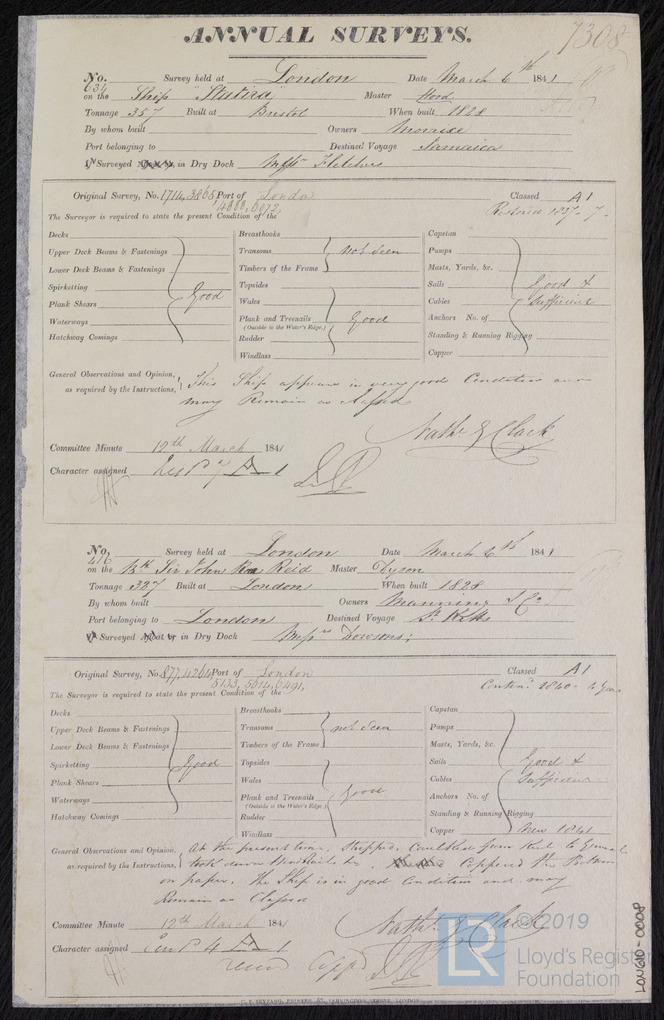 7308
ANNUAL SURVEYS.
No. 634 Survey held at London Date March 6th 1841
on the Ship "Statira" Master Hord
Tonnage 357 Built at Bristol When built 1828
By whom built Owners
Port belonging to Destined Voyage Jamaica
Surveyed in Dry Dock Messrs Fletchers
Original Survey, No. 1714, 3865 Port of London Classed A1
Restored 1837-7-
The Surveyor is required to state the present Condition of the
Decks
Upper Deck Beams & Fastenings
Lower Deck Beams & Fastenings
Spirketting
Plank Shears
Waterways
Hatchway Comings
Good
Breasthooks
Transoms
Timbers of the Frame
not seen
Topsides
Wales
Plank and Treenails
(Outside to the Water's Edge.)
Rudder
Windlass
Good
Capstan
Pumps
Masts, Yards, &c.
Sails
Cables
Anchors No. of
Standing & Running Rigging
Copper
Good &
Sufficient
General Observations and Opinion,
as required by the Instructions,
This Ship appears in very good Condition and
may Remain as Classed
Nathl. G Clark
Committee Minute 12th March 1841
Character assigned A 1
No. 416 Survey held at London Date March 6th 1841
on the Bk Sir John Rae Reid Master Tyson
Tonnage 327 Built at London When built 1828
By whom built Owners Manning & Co.
Port belonging to London Destined Voyage St. Kitts
Surveyed in Dry Dock Messrs Dowsons;
Original Survey, No. 877, 4264 Port of London Classed A1
5133, 5614, 6491, Contind. 1840- 4 Years
The Surveyor is required to state the present Condition of the
Decks
Upper Deck Beams & Fastenings
Lower Deck Beams & Fastenings
Spirketting
Plank Shears
Waterways
Hatchway Comings
Good
Breasthooks
Transoms
Timbers of the Frame
not seen
Topsides
Wales
Plank and Treenails
(Outside to the Water's Edge.)
Rudder
Windlass
Good
Capstan
Pumps
Masts, Yards, &c.
Sails
Cables
Anchors No. of
Standing & Running Rigging
Copper New 1841
Good &
Sufficient
General Observations and Opinion,
as required by the Instructions,
At the present time, Stripped, Caulked from Keel to Gunwale
took down Coppered the Bottom
on paper. the Ship is in good Condition and may
Remain as Classed
Nathl. G Clark
Committee Minute 12th March 1841
Character assigned Cont P 4 A 1
LR
© 2019
Lloyd's Register
Foundation
LON610-0008